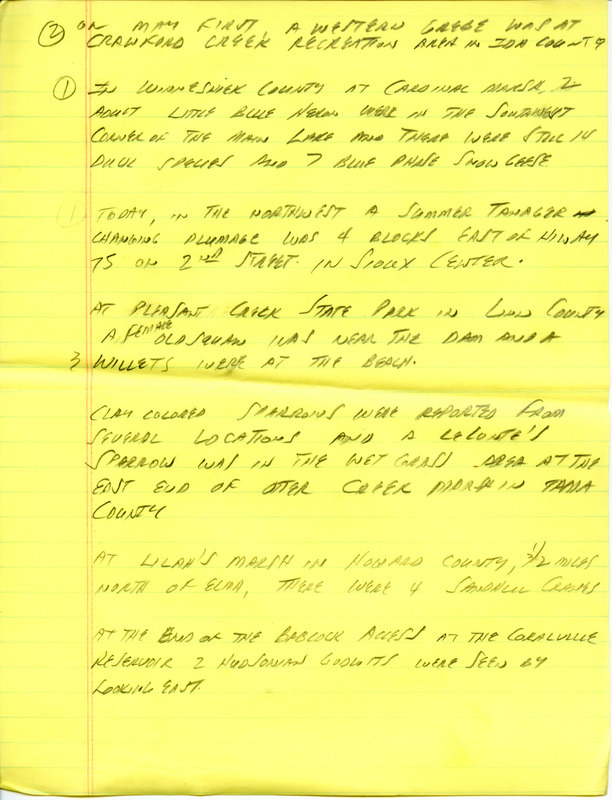 ② ON MAY FIRST A WESTERN GREBE WAS AT
CRAWFORD CREEK RECREATION AREA IN IDA COUNTY
① IN WINNESHIEK COUNTY AT CARDINAL MARSH, 2
ADULT LITTLE BLUE HERON WERE IN THE SOUTHWEST
CORNER OF THE MAIN LAKE AND THERE WERE STILL 14
DUCK SPECIES AND 7 BLUE PHASE SNOW GEESE
① TODAY, IN THE NORTHWEST A SUMMER TANAGER
CHANGING PLUMAGE WAS 4 BLOCKS EAST OF HIWAY
75 ON 2ND STREET. IN SIOUX CENTER.
AT PLEASANT CREEK STATE PARK IN LINN COUNTY
A FEMALE OLDSQUAW WAS NEAR THE DAM AND A
3 WILLETS WERE AT THE BEACH.
CLAY COLORED SPARROWS WERE REPORTED FROM
SEVERAL LOCATIONS AND A LECONTE'S
SPARROW WAS IN THE WET GRASS AREA AT THE
EAST END OF OTTER CREEK MARSH IN TAMA
COUNTY
AT LILAH'S MARSH IN HOWARD COUNTY, 3 1/2 MILES
NORTH OF ELMA, THERE WERE 4 SANDHILL CRANES
AT THE END OF THE BABCOCK ACCESS AT THE CORALVILLE
RESERVOIR 2 HUDSONIAN GODWITS WERE SEEN BY
LOOKING EAST.